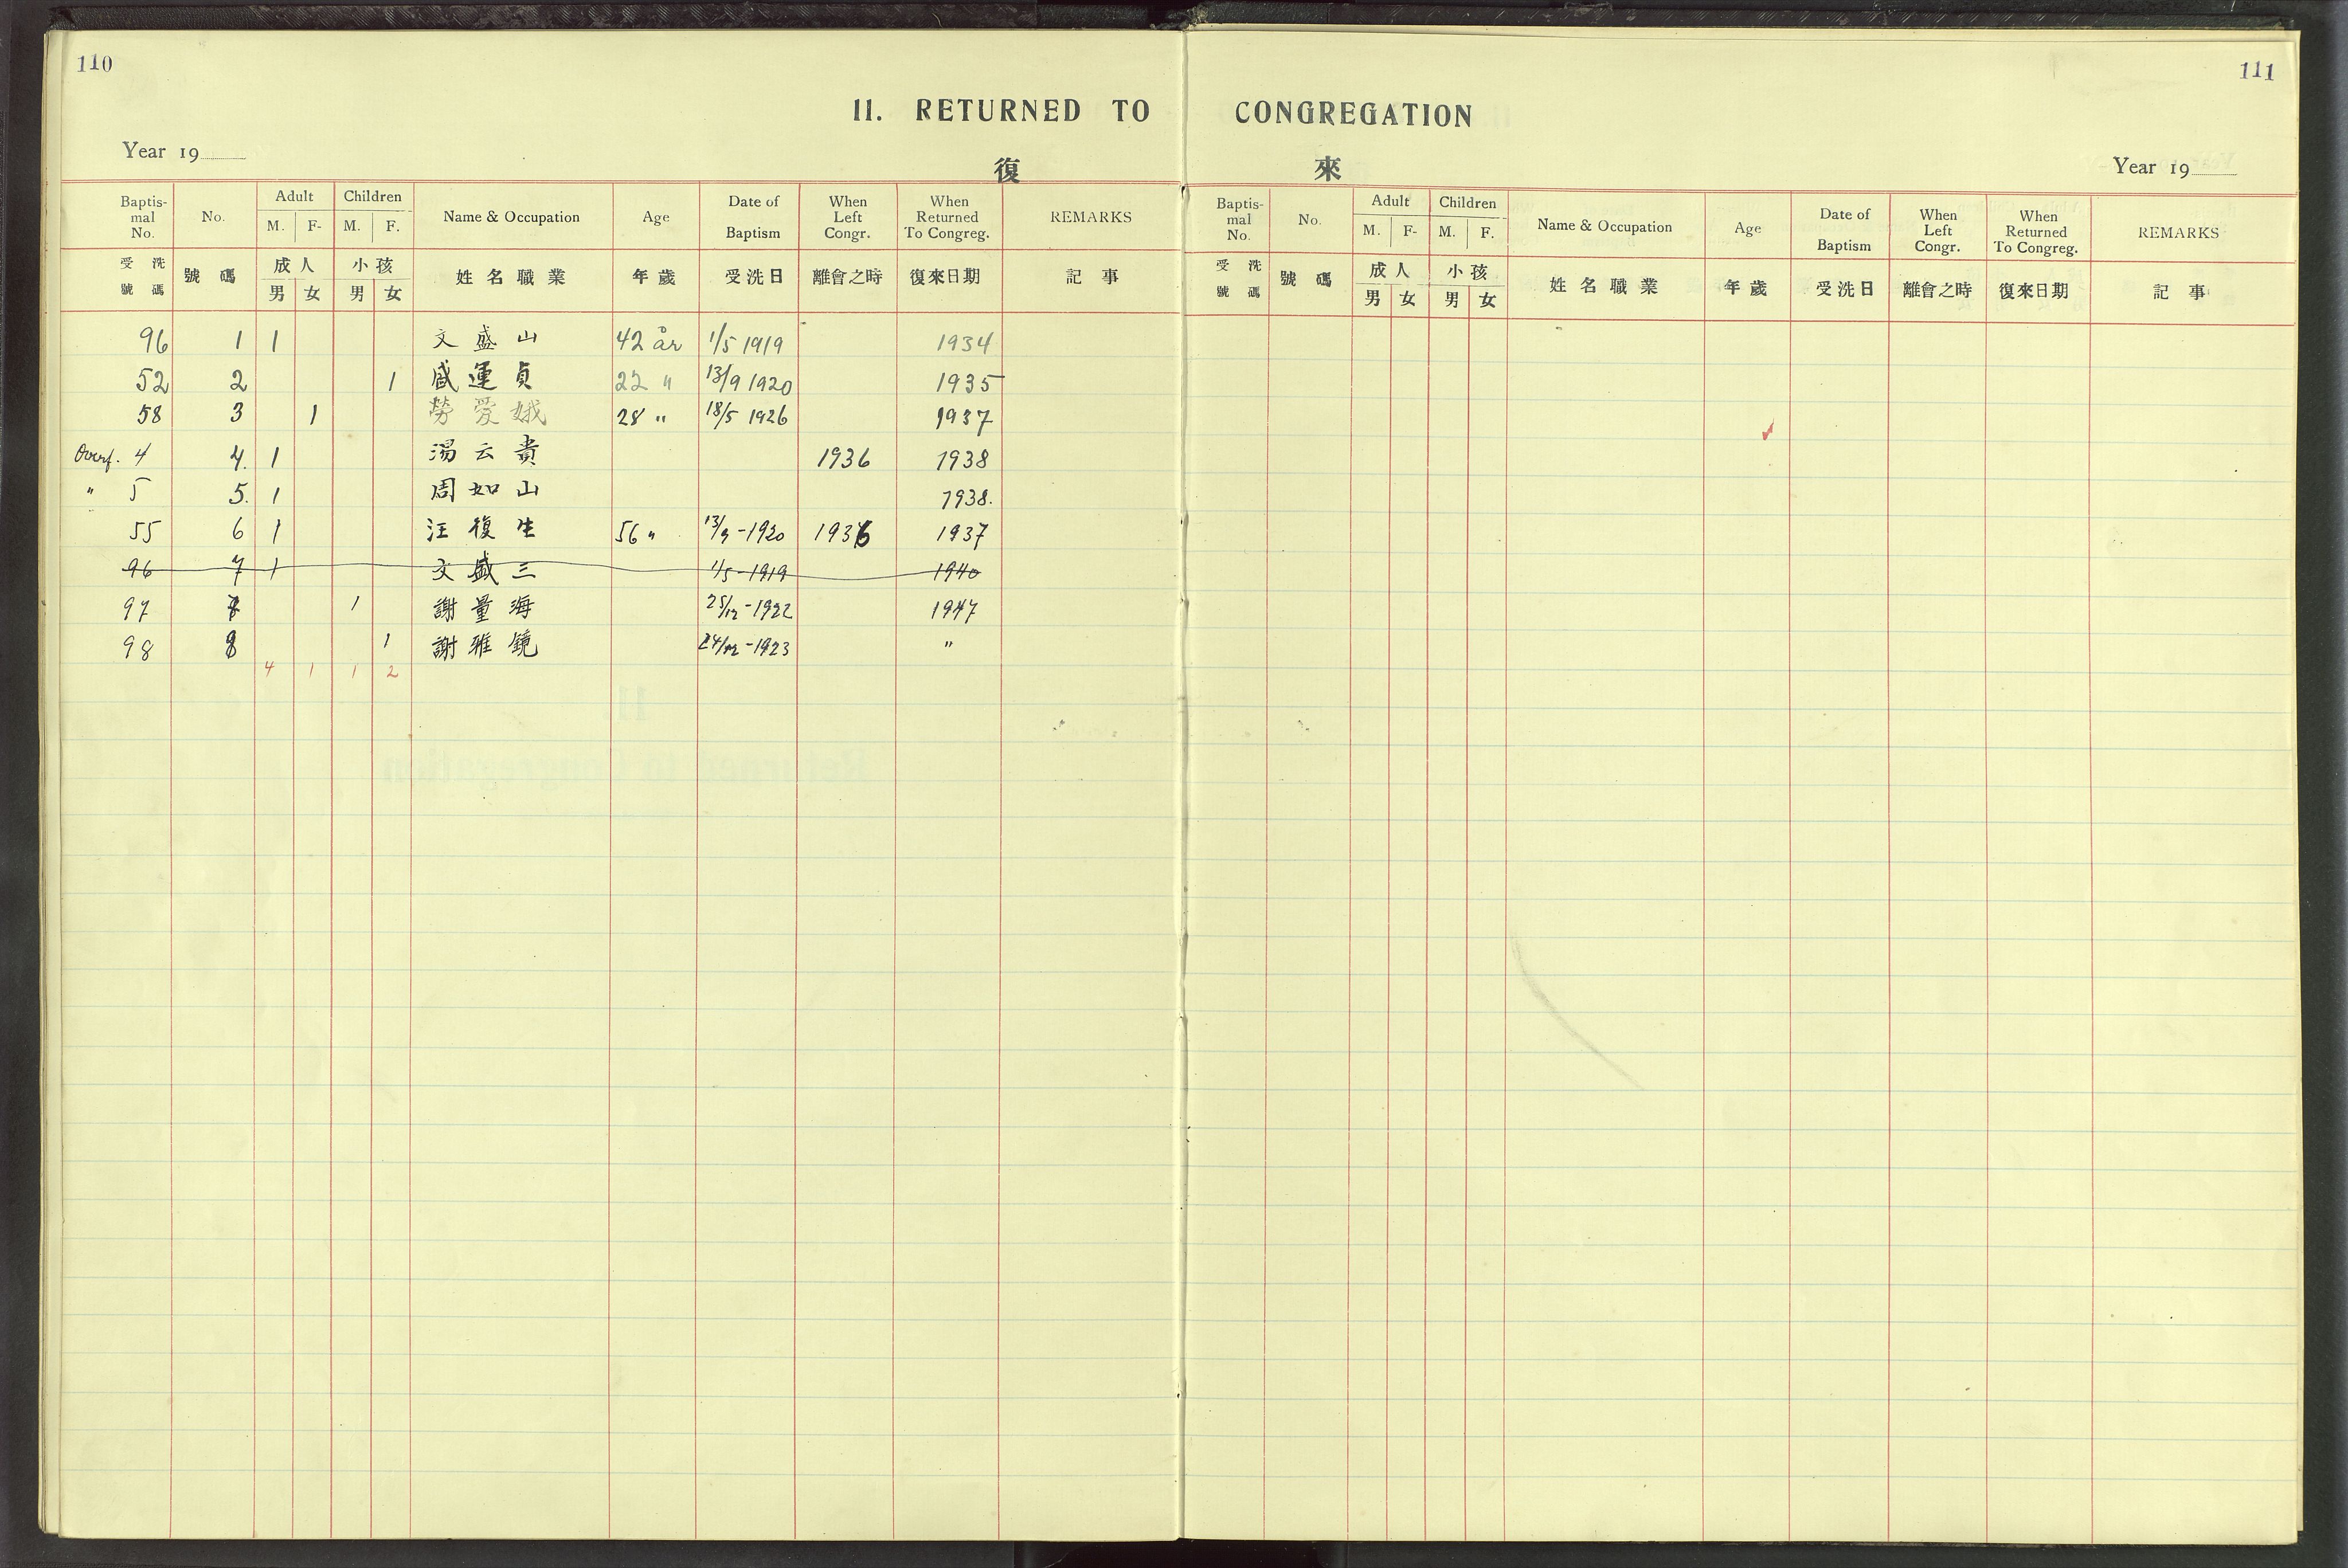 110
111
11. RETURNED TO CONGREGATION
Year 19
復 來
Year 19
Baptis-mal No. No. Adult M. F- Children M. F. Name & Occupation Age Date of Baptism When Left Congr. When Returned To Congreg. REMARKS
受洗號碼 號碼 成人 男 女 小孩 男 女 姓名職業 年歲 受洗日 離會之時 復來日期 記事
96 1 1 文盛山 42 år 1/5 1919 1934
52 2 1 盛運貞 22 " 13/9 1920 1935
58 3 1 勞愛娥 28 " 18/5 1926 1937
Overf. 4 4. 1 湯云貴 1936 1938
" 5 5. 1 周如山 1938.
55 6 1 汪復生 56 " 13/9-1920 1936 1937
96 7 1 文盛三 1/5-1919 1940
97 7 1 謝量海 25/12-1922 1947
98 8 1 謝雅鏡 24/12-1923 "
4 1 1 2
Baptis-mal No. No. Adult M. F- Children M. F. Name & Occupation Age Date of Baptism When Left Congr. When Returned To Congreg. REMARKS
受洗號碼 號碼 成人 男 女 小孩 男 女 姓名職業 年歲 受洗日 離會之時 復來日期 記事